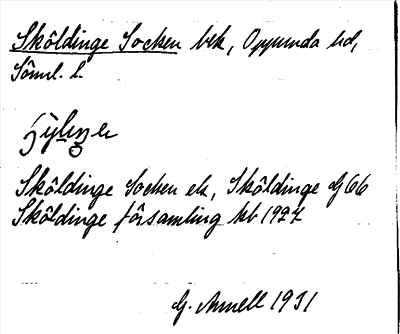 Sköldinge Socken bek, Oppunda hd,
Söml. L.
Sköldinge Socken ek, Sköldinge G66
Sköldinge församling kb 1927
G. Annell 1931